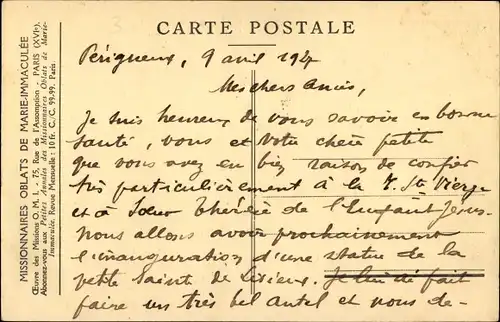 CARTE POSTALE
MISSIONNAIRES OBLATS DE MARIE-IMMACULÉE
Œuvre des Missions O. M. I. - 75, Rue de l'Assomption - PARIS (XVIe)
Abonnez-vous aux « Petites Annales des Missionnaires Oblats de Marie-
Immaculée. Revue Mensuelle : 10 fr. C./C. 99-99. Paris
Périgueux, 9 avril 192
Mes chers Amis,
Je suis heureux de vous savoir en bonne
santé, vous et votre chère petite
que vous avez eu bien raison de confier
très particulièrement à la T. Ste Vierge
et à Sœur Thérèse de l'Enfant Jésus.
Nous allons avoir prochainement
l'inauguration d'une statue de la
petite Sainte de Lisieux. Je lui ai fait
faire un très bel autel et nous de-